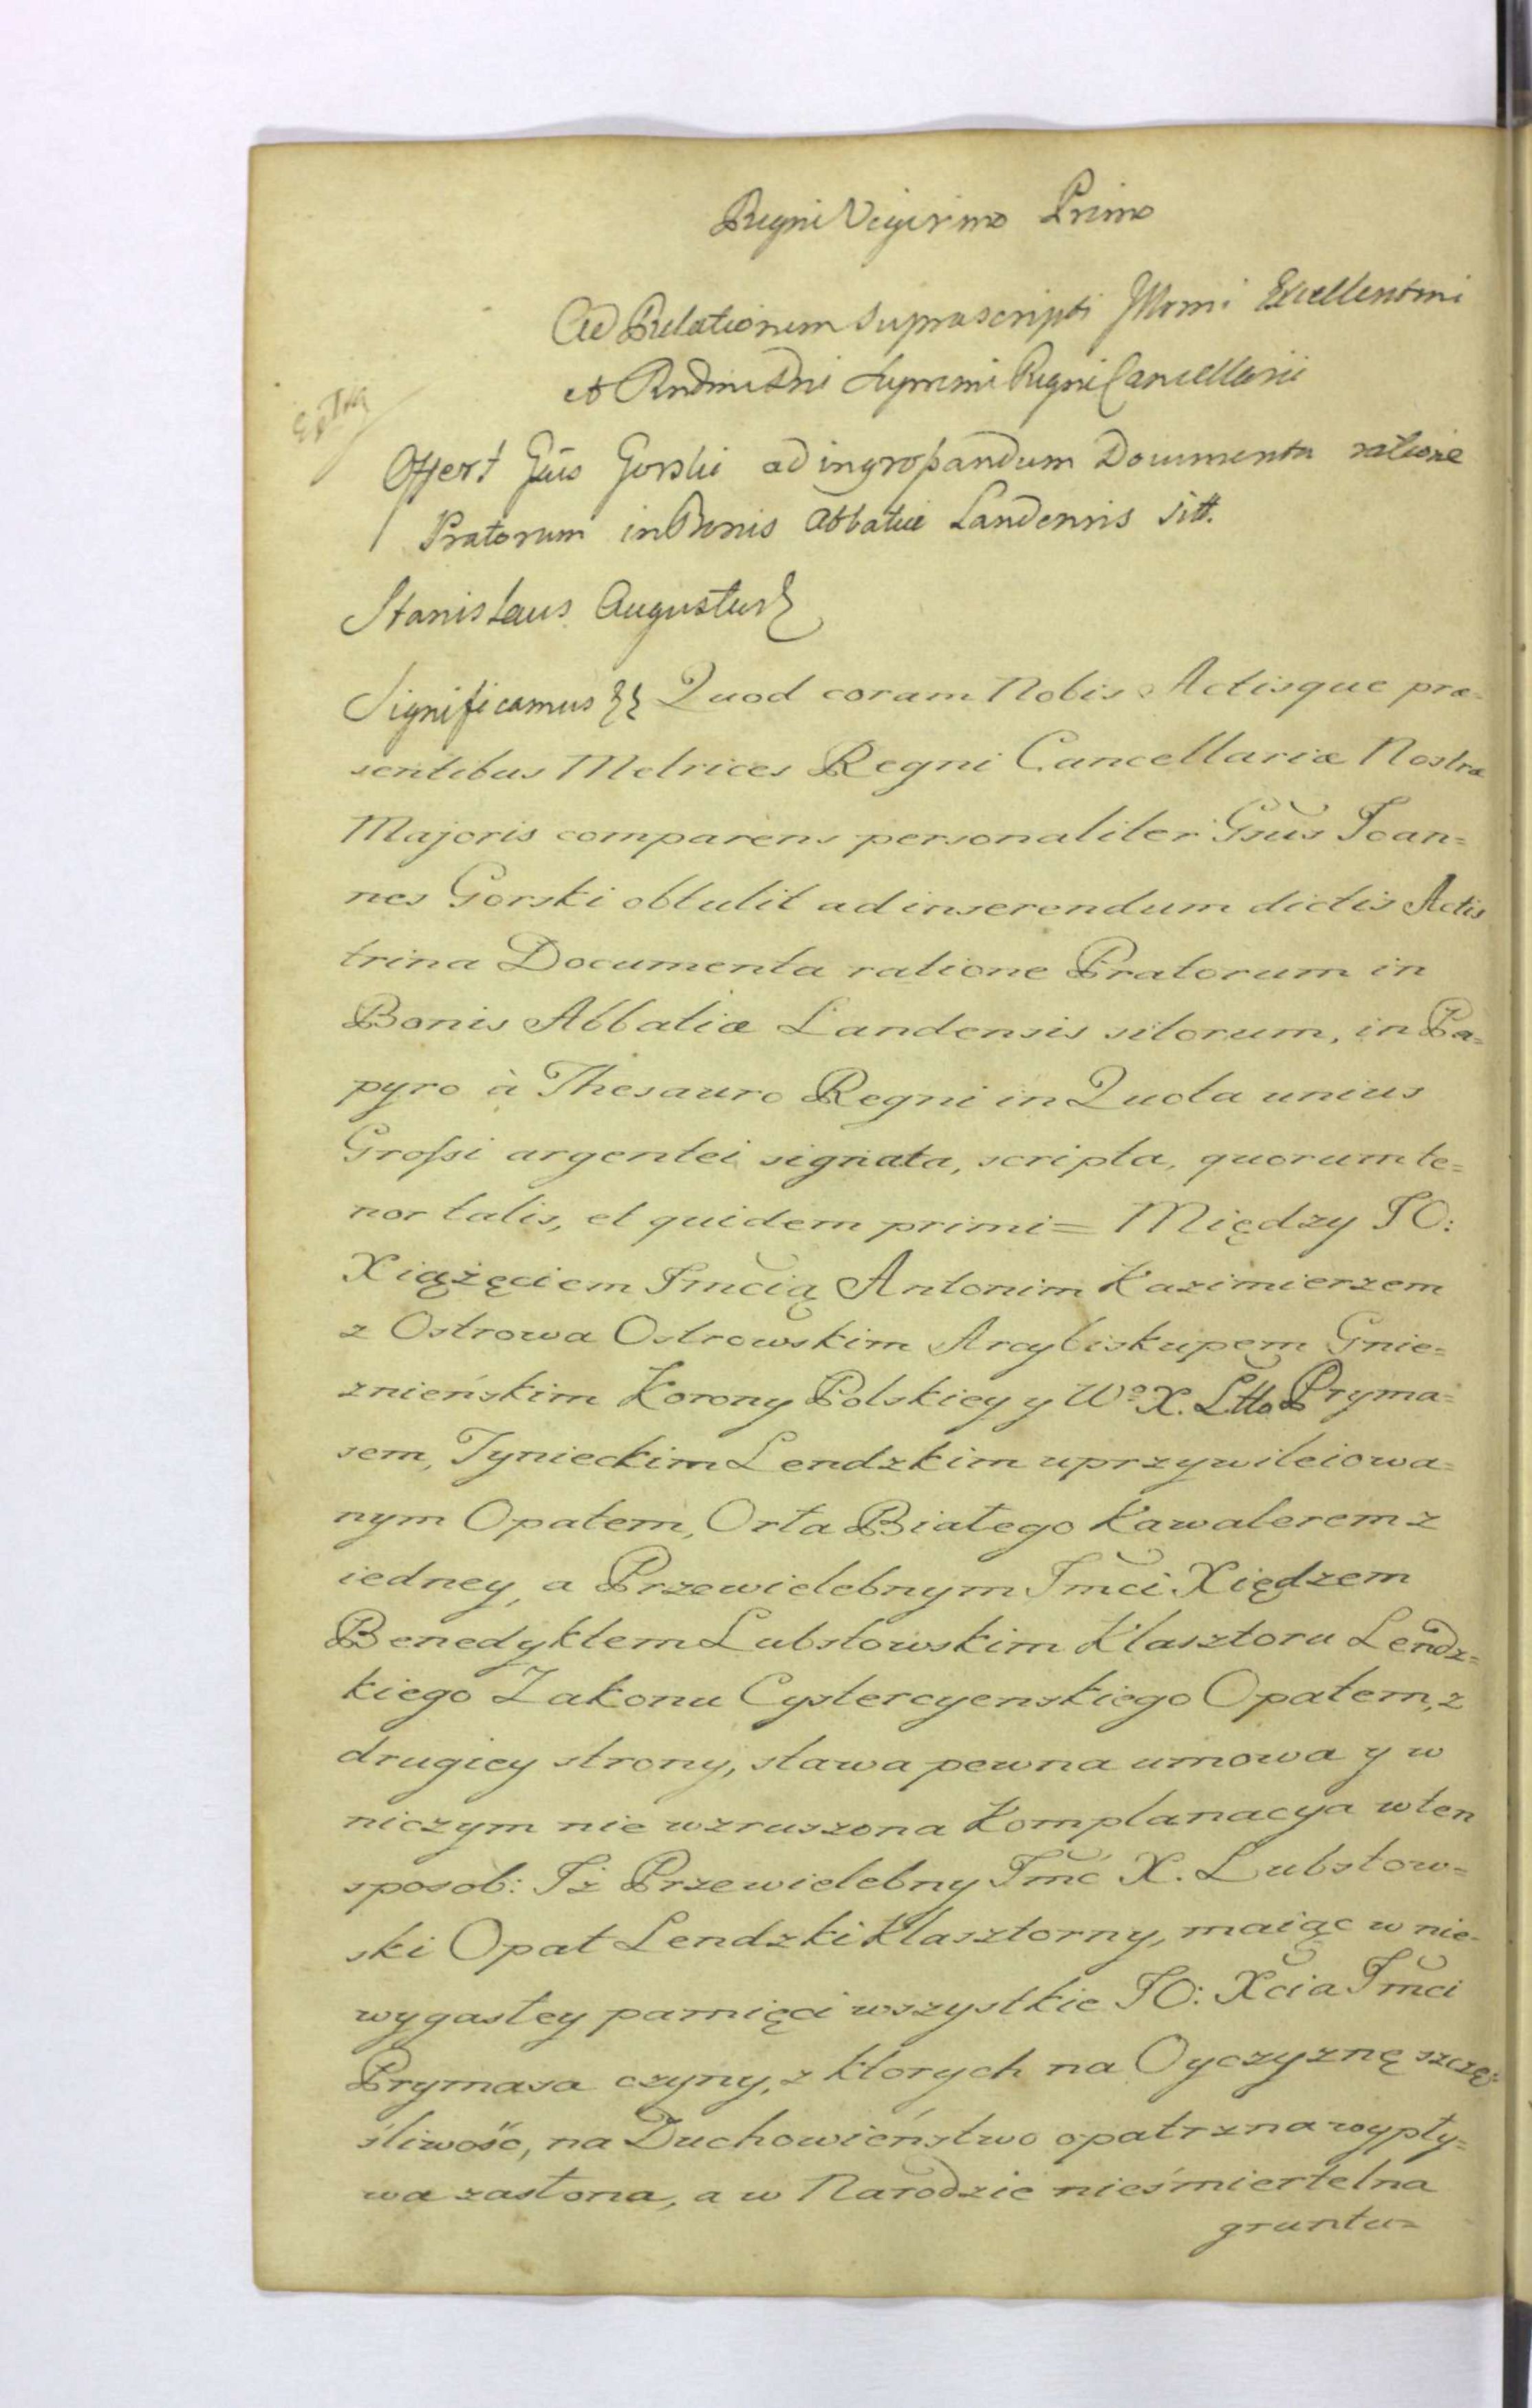 Regni Vigesimo Primo
Ad Relationem Suprascripti Illmi Excellentmi
et Rndmi Dni Supremi Regni Cancellarii
Offert Gñus Gorski ad ingroſsandum Documenta ratione
Pratorum in Bonis Abbatiæ Landensis sitt.
Stanislaus Augustus
Significamus Quod coram Nobis Actisque præ-
sentibus Metrices Regni Cancellariæ Nostræ
Majoris comparens personaliter Gñus Joan=
nes Gorski obtulit ad inserendum dictis Actis
trina Documenta ratione Pratorum in
Bonis Abbatiæ Landensis sitorum, in Pa=
pyro à Thesauro Regni in Quota unius
Groſsi argentei signata, scripta, quorum te=
nor talis, et quidem primi= Między JO:
Xiążęciem Jmcią Antonim Kazimierzem
z Ostrowa Ostrowskim Arcybiskupem Gnie=
znieńskim Korony Polskiey y Wo X. Ltto Pryma=
sem, Tynieckim Lendzkim uprzywileiowa=
nym Opatem, Orła Białego Kawalerem z
iedney, a Przewielebnym Jmci Xiędzem
Benedyktem Lubstowskim Klasztoru Lendz=
kiego Zakonu Cystercyenskiego Opatem, z
drugiey strony, stawa pewna umowa y w
niczym nie wzruszona Komplanacya w ten
sposob: Iż Przewielebny Jmć X. Lubstow=
ski Opat Lendzki Klasztorny, maiąc w nie-
wygasłey pamięci wszystkie JO: Xcia Jmci
Prymasa czyny, z ktorych na Oyczyznę szczę=
śliwość, na Duchowieństwo opatrzna wypły=
wa zasłona, a w Narodzie nieśmiertelna
gruntu=